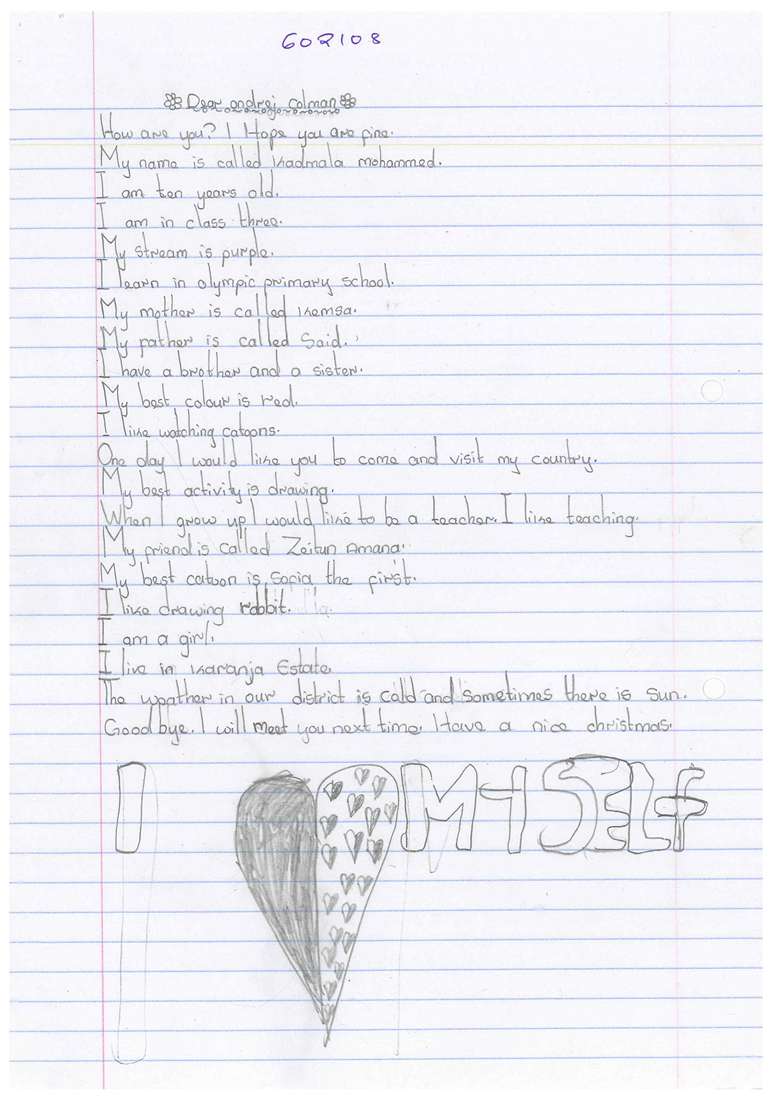 602108
Dear andrej colman
How are you? I Hope you are fine.
My name is called Khadmala mohammed.
I am ten years old.
I am in class three.
My stream is purple.
I learn in olympic primary school.
My mother is called Khemsa.
My father is called Said.
I have a brother and a sister.
My best colour is red.
I like watching catoons.
One day I would like you to come and visit my country.
My best activity is drawing.
When I grow up I would like to be a teacher. I like teaching.
My friend is called Zeitun Amana.
My best catoon is Sofia the first.
I like drawing rabbit.
I am a girl.
I live in Karanja Estate.
The weather in our district is cold and sometimes there is sun.
Good bye. I will meet you next time. Have a nice christmas.
I MYSELF